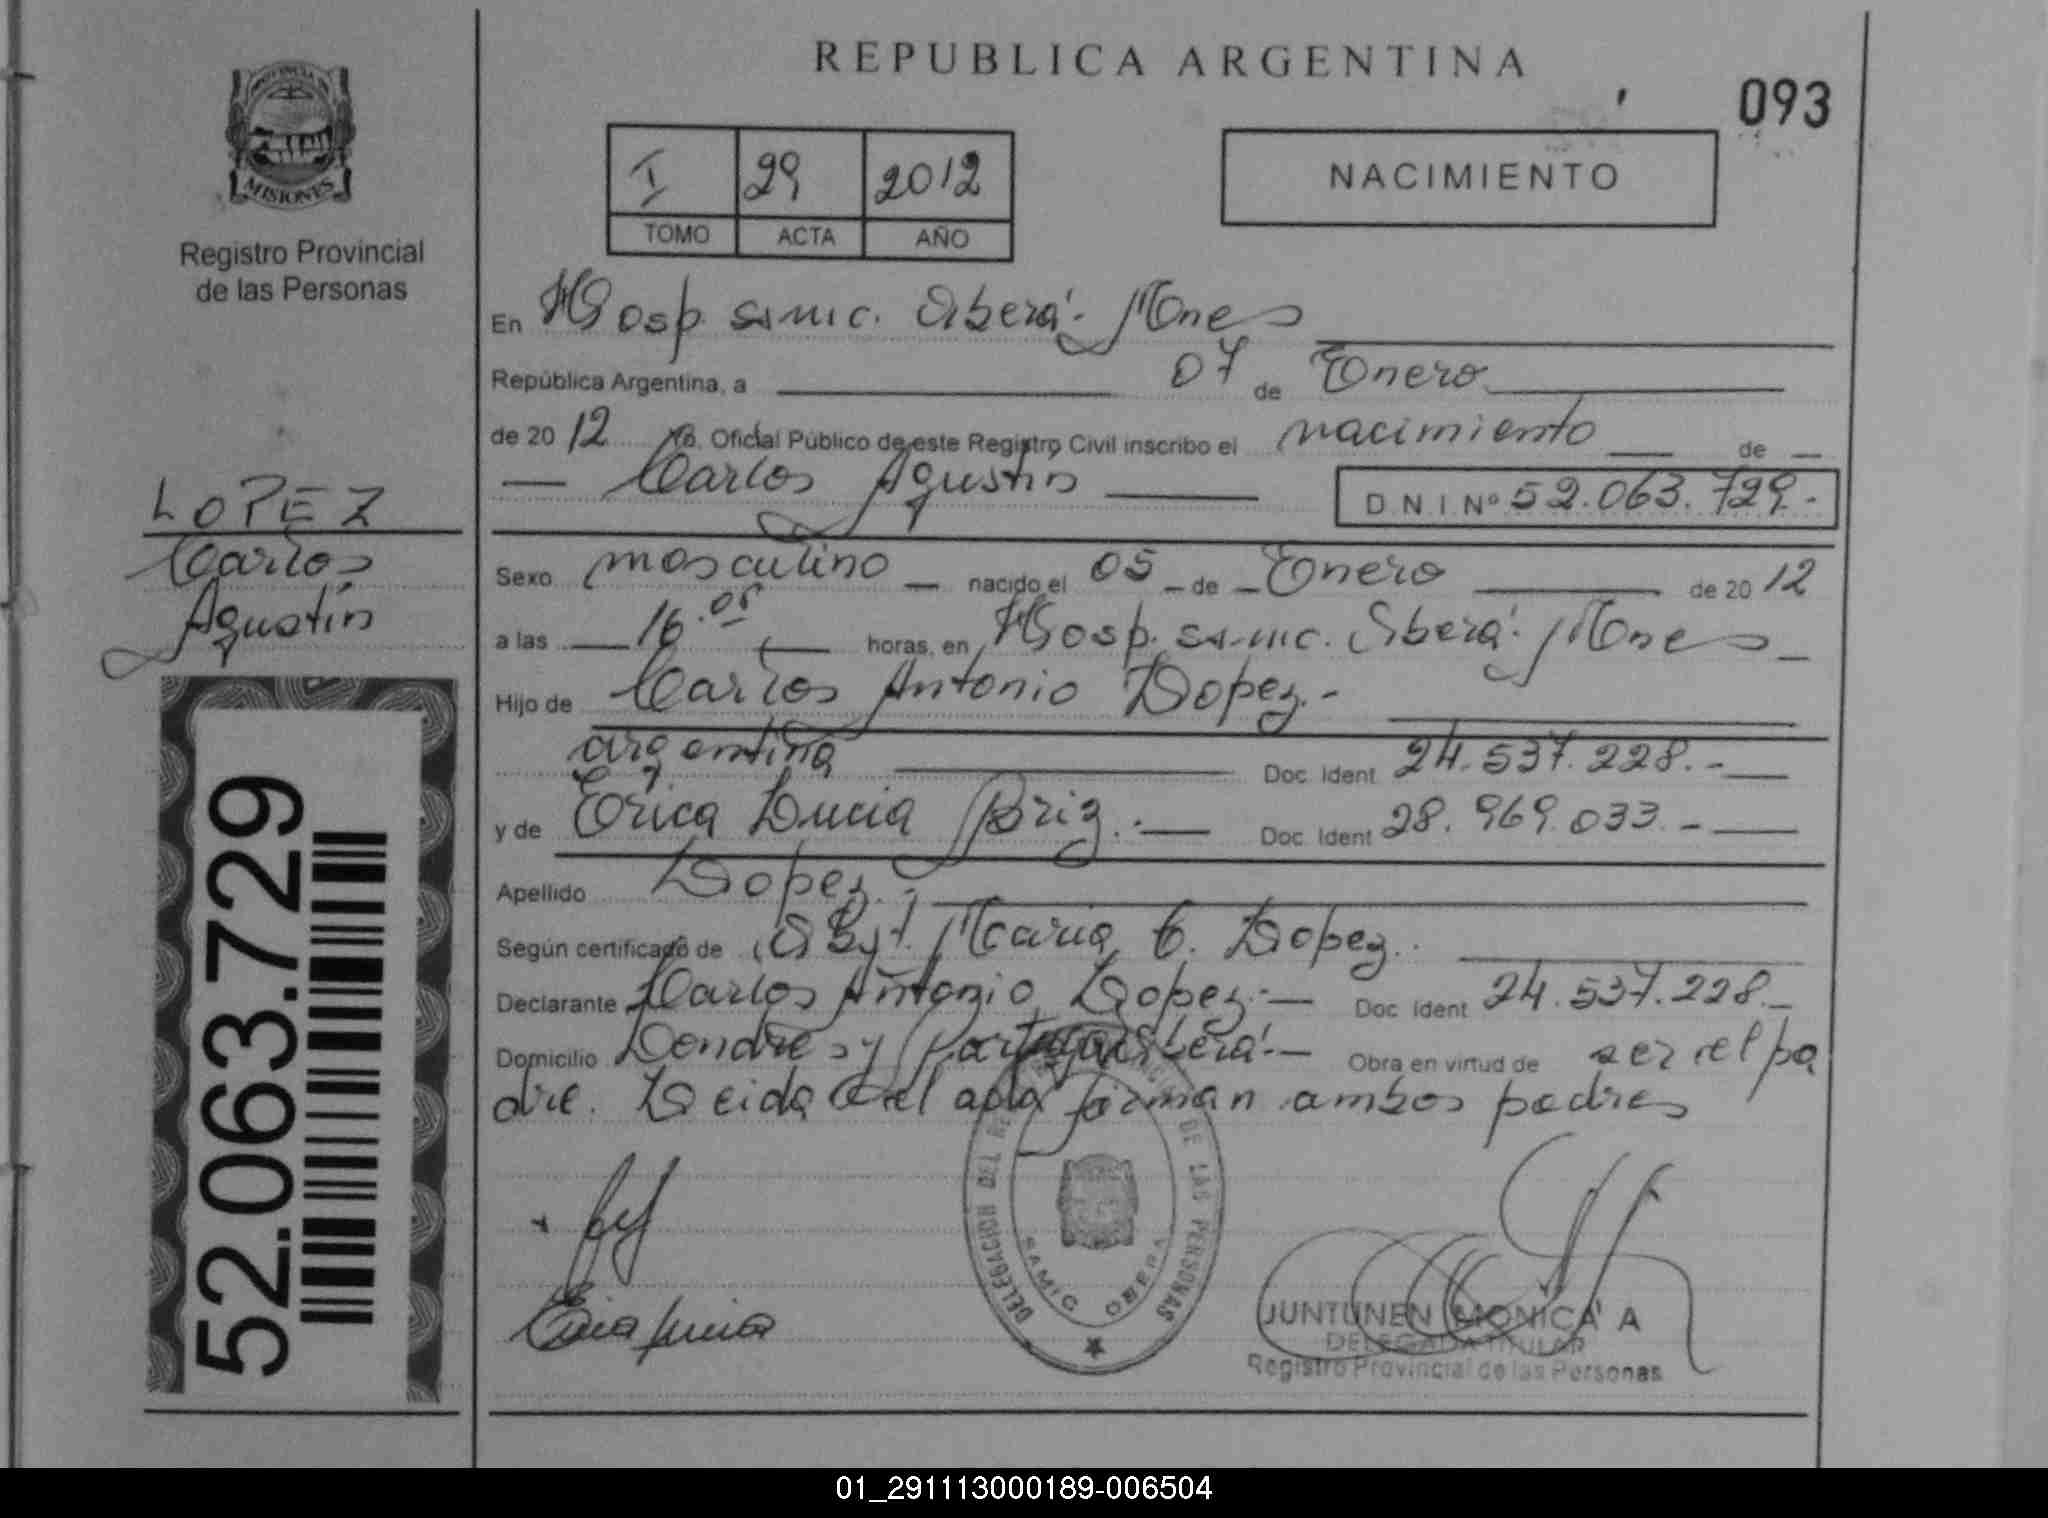 REPUBLICA ARGENTINA
093
PROVINCIA DE
MISIONES
Registro Provincial
de las Personas
I 29 2012
TOMO ACTA AÑO
NACIMIENTO
En Hosp. Samic. Oberá. Mnes
República Argentina, a 07 de Enero
de 20 12 Yo. Oficial Público de este Registro Civil inscribo el nacimiento de
Carlos Agustin D.N.I.Nº 52.063.729.-
LOPEZ
Carlos
Agustín
Sexo masculino nacido el 05 de Enero de 20 12
a las 16.05 horas, en Hosp. Samic. Oberá. Mnes
Hijo de Carlos Antonio Lopez.-
argentina Doc. Ident 24.537.228.-
y de Erica Lucia Briz.- Doc. Ident 28.969.033.-
Apellido Lopez.-
Según certificado de Maria C. Lopez.
Declarante Carlos Antonio Lopez.- Doc. Ident 24.537.228.-
Domicilio Londres y Oberá.- Obra en virtud de ser el pa
dre. Leida el acta firman ambos padres
52.063.729
DELEGACION DEL REGISTRO PROVINCIAL DE LAS PERSONAS
SAMIC OBERA
Erica Lucia
JUNTUNEN MONICA A
DELEGADA TITULAR
Registro Provincial de las Personas
01_291113000189-006504